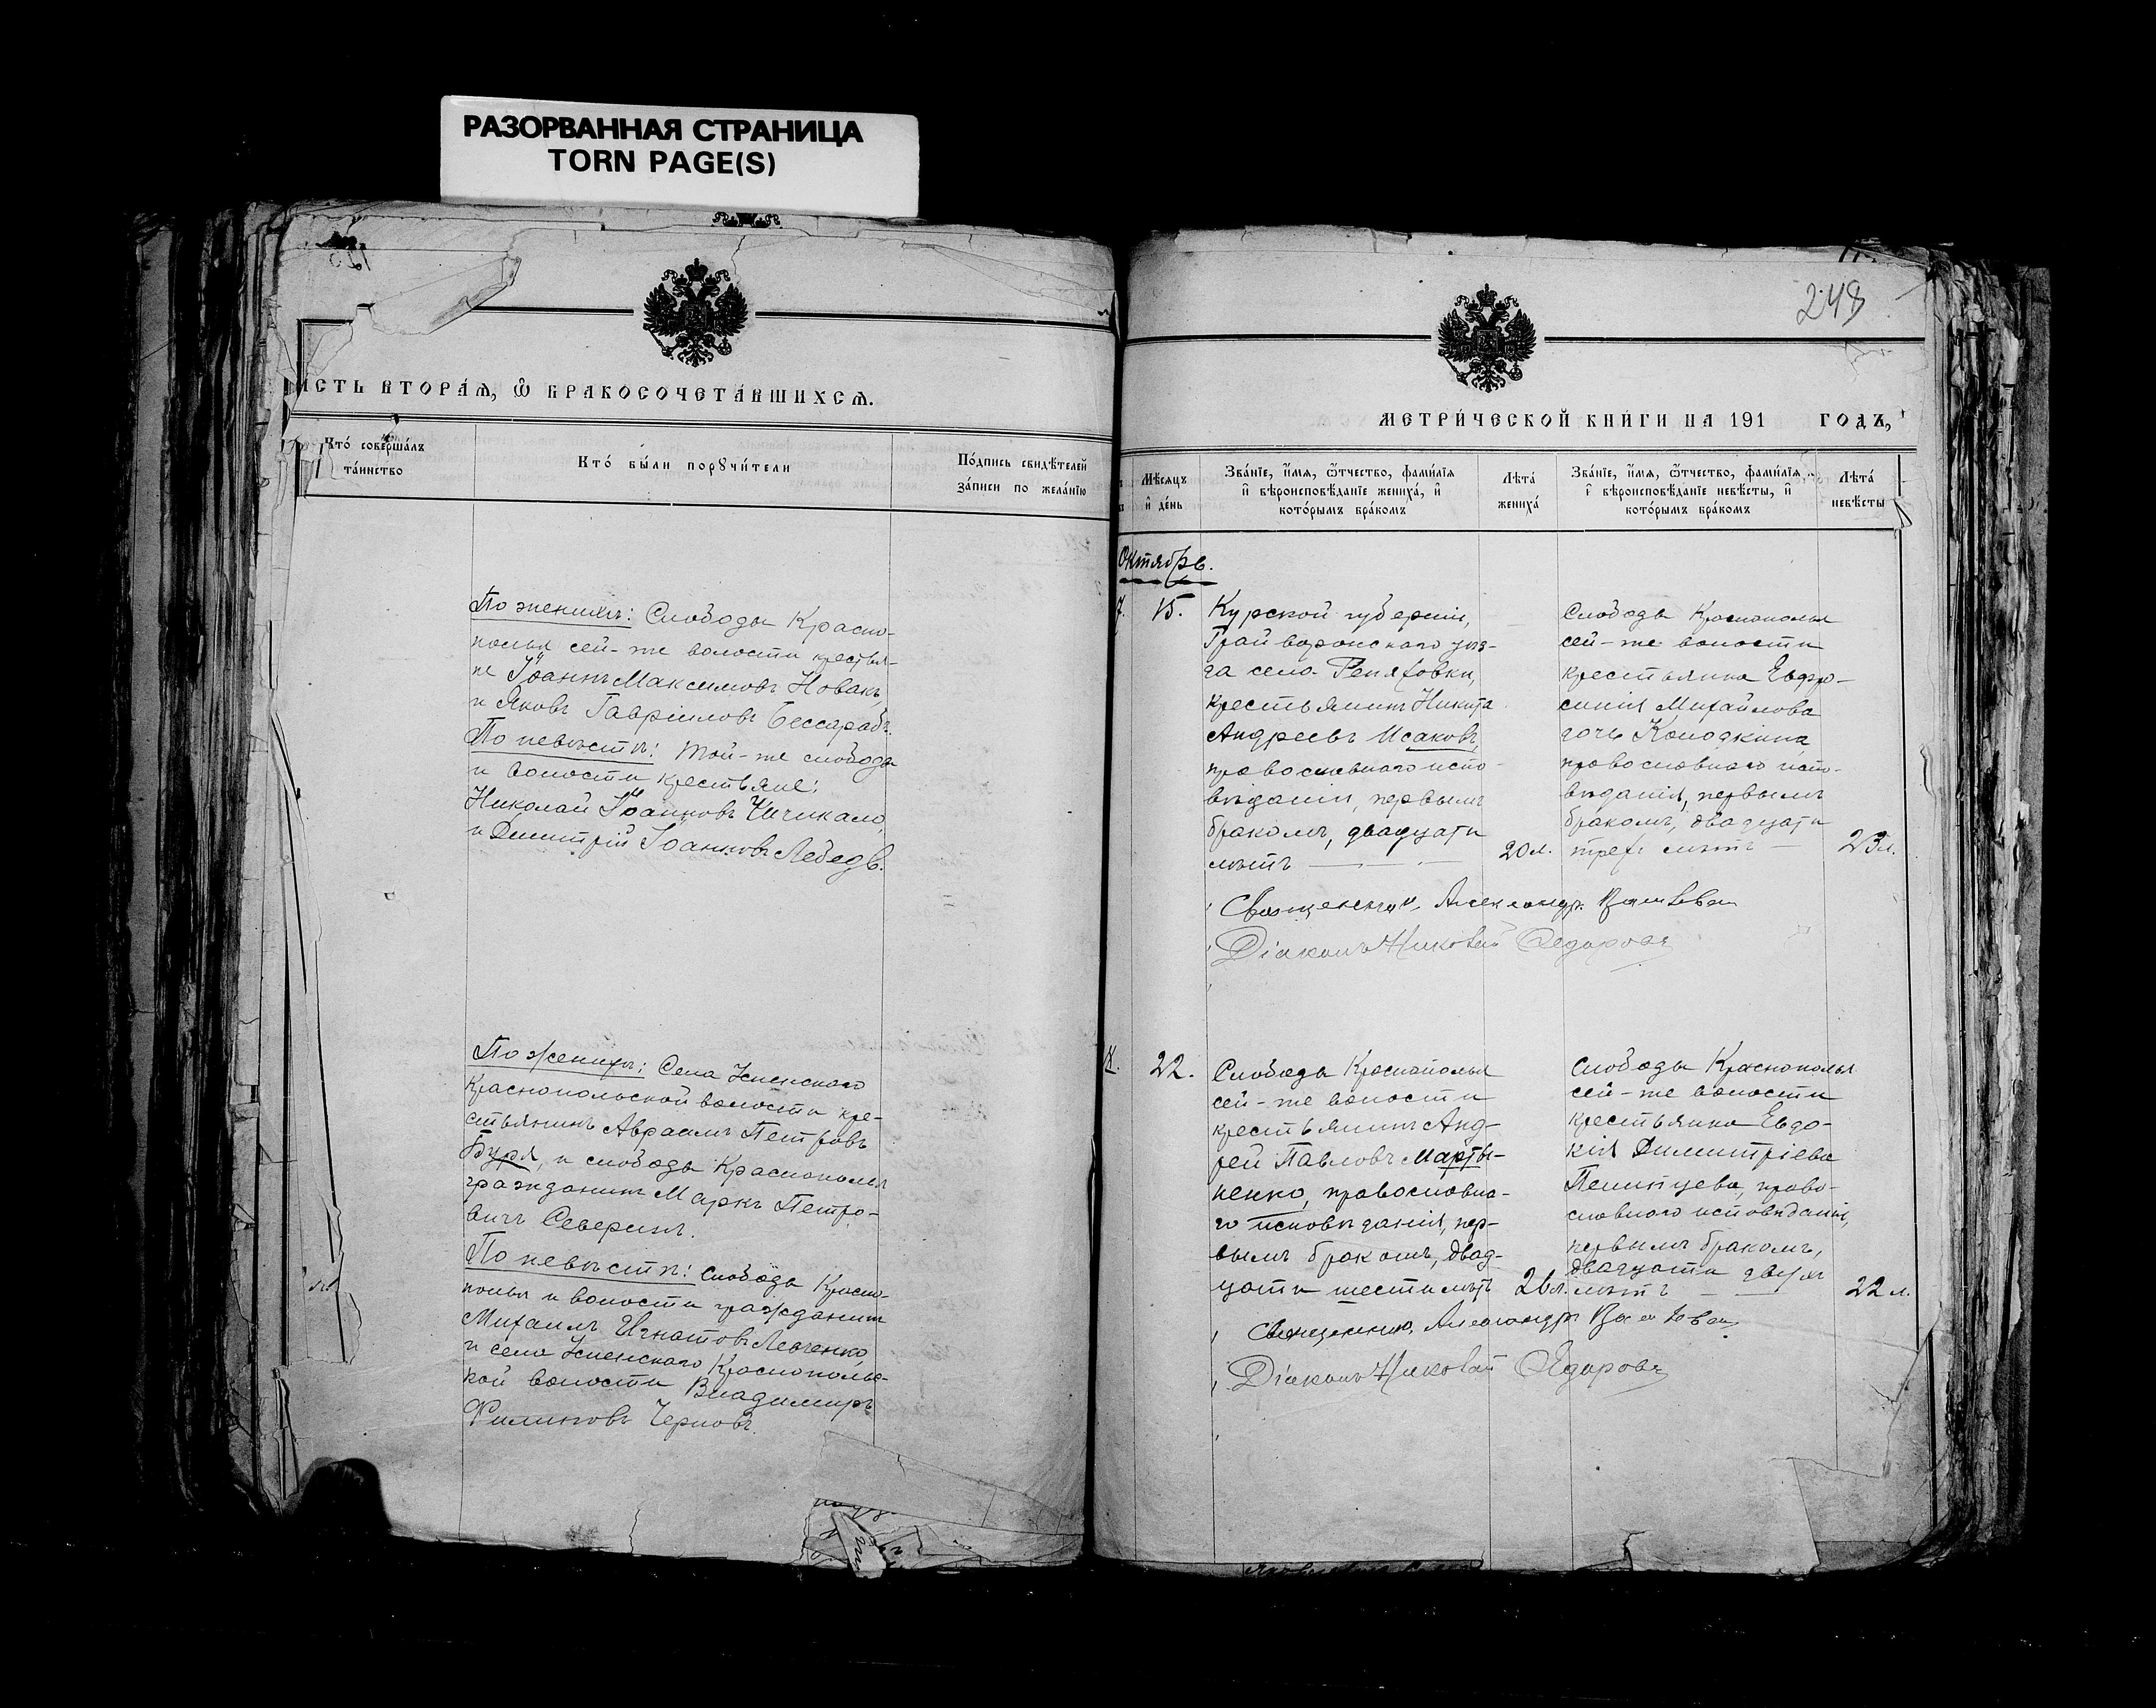 РАЗОРВАННАЯ СТРАНИЦА
TORN PAGE(S)
исть вторáѧ, ѿ бракосочетáвшихсѧ.
Ктó совершáлъ
тáинство
Ктó бы́ли порꙋчи́тели
Пóдпись свидѣ́телей
зáписи по желáнїю
По женихѣ: Слободы Красно-
полья сей-же волости крестья-
не Іоаннъ Максимовъ Новакъ,
и Яковъ Гавріиловъ Бессарабъ.
По невѣстѣ: той-же слободы
и волости крестьяне:
Николай Іоанновъ Чичикало,
и Димитрій Іоанновъ Лебедь.
По женихѣ: Села Успенскаго
Краснопольской волости кре-
стьянинъ Авраамъ Петровъ
Буря, и слободы Краснополья
гражданинъ Маркъ Петро-
вичъ Северинъ.
По невѣстѣ: слободы Красно-
полья и волости гражданинъ
Михаилъ Игнатовъ Левченко,
и села Успенскаго Краснополь-
кой волости Владимиръ
Филиповъ Черновъ.
248
метри́ческой кни́ги на 191 годъ,
Мѣ́сяцъ
и҆ дéнь
Звáнїе, и҆́мя, ѻ҆́тчество, фами́лїя
и҆ вѣроисповѣ́данїе женихá, и҆
котóрымъ брáкомъ
Лѣтá
женихá
Звáнїе, и҆́мя, ѻ҆́тчество, фами́лїя
и҆ вѣроисповѣ́данїе невѣ́сты, и҆
котóрымъ брáкомъ
Лѣтá
невѣ́сты
Октябрь.
7. 15.
Курской губерніи,
Грайворонскаго уѣз-
да села Репяховки,
крестьянинъ Никита
Андреевъ Исаковъ,
православнаго испо-
вѣданія, первымъ
бракомъ, двадцати
лѣтъ
20 л.
Слободы Краснополья
сей-же волости
крестьянка Евфро-
синія Михайлова
дочь Колодкина,
православнаго испо-
вѣданія, первымъ
бракомъ, двадцати
трехъ лѣтъ
23 л.
Священникъ Александръ
Діаконъ Николай Федоровъ
8. 22.
Слободы Краснополья
сей-же волости
крестьянинъ Анд-
рей Павловъ Марты-
ненко, православна-
го исповѣданія, пер-
вымъ бракомъ, двад-
цати шести лѣтъ
26 л.
Слободы Краснополья
сей-же волости
крестьянка Евдо-
кія Димитріева
православнаго исповѣданія,
первымъ бракомъ,
двадцати двухъ
лѣтъ
22 л.
Священникъ Александръ
Діаконъ Николай Федоровъ